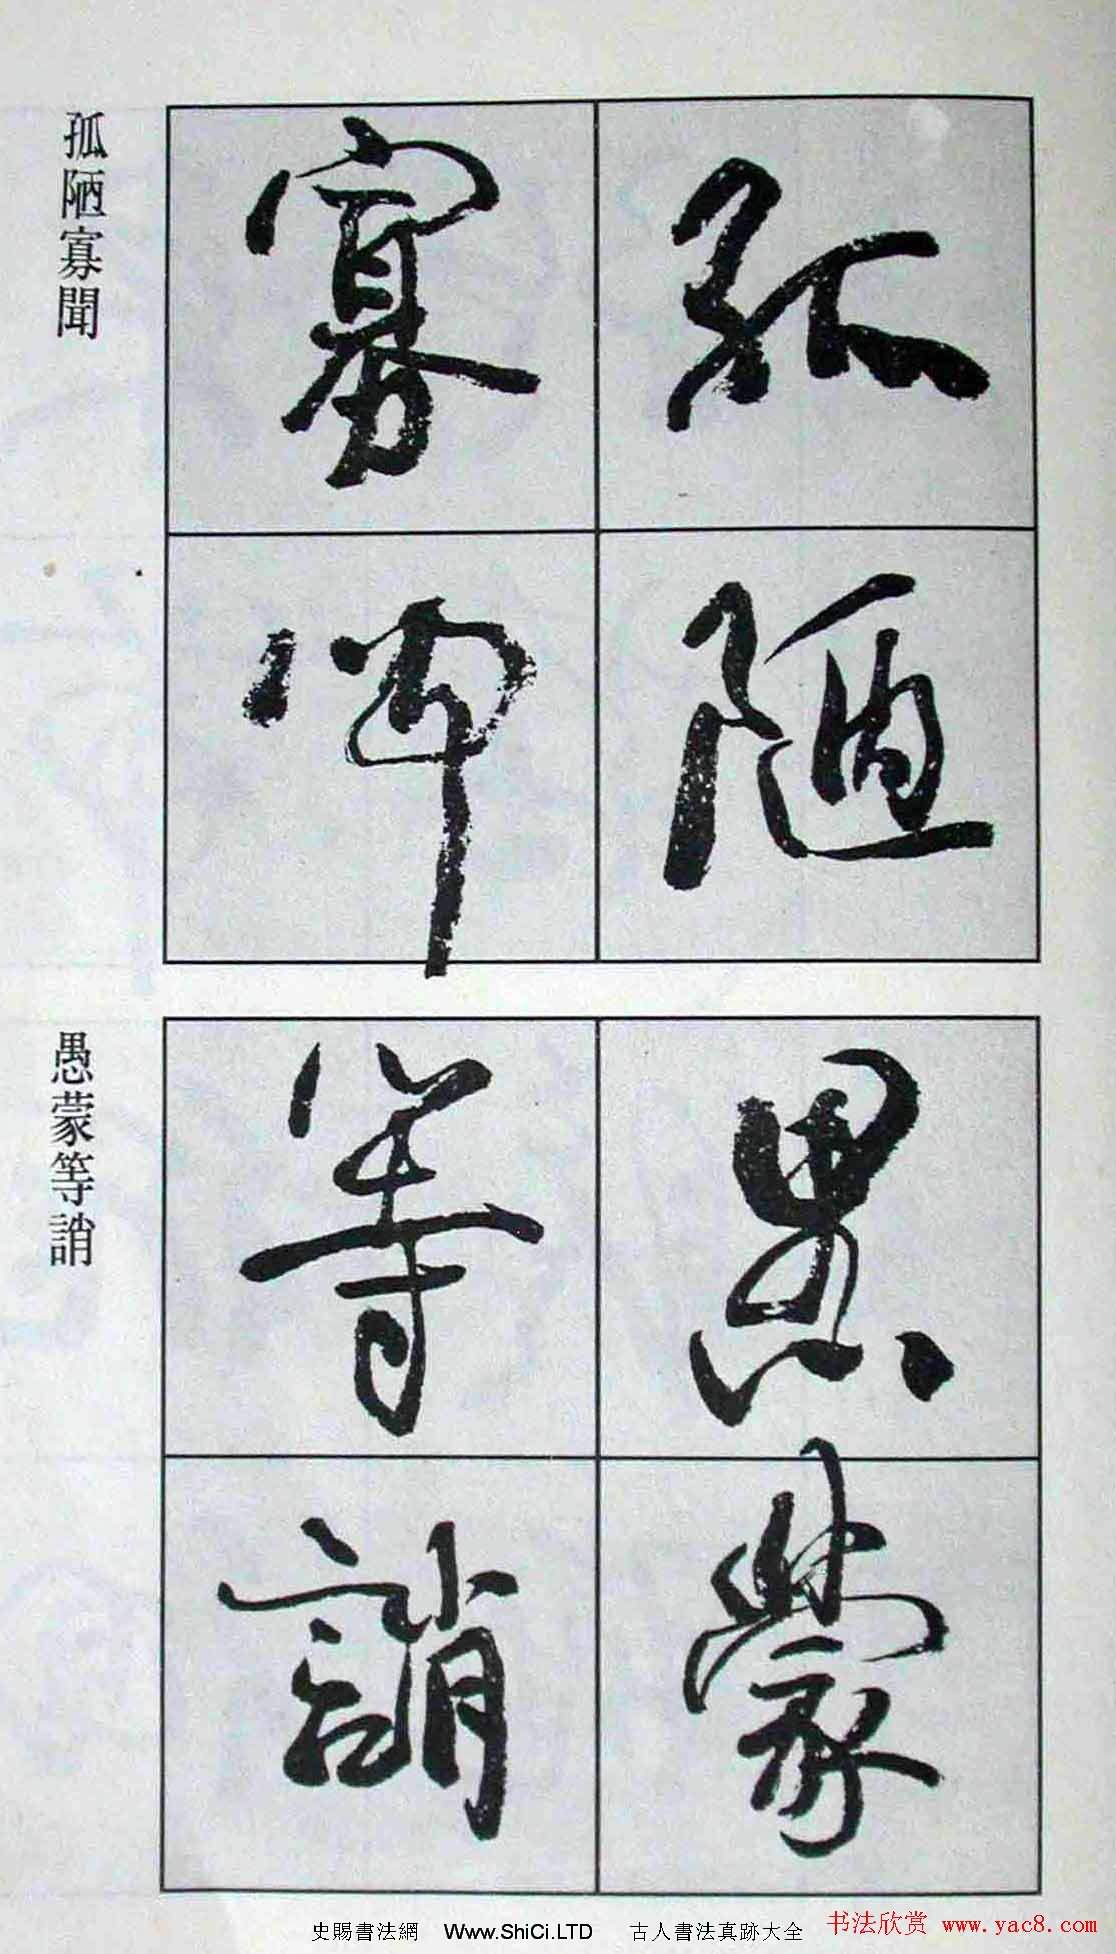 孤陋
寡聞
孤陋寡聞
愚蒙
等誚
愚蒙等誚
史賜書法網 Www.ShiCi.LTD 古人書法真跡大全
书法欣赏 www.yac8.com